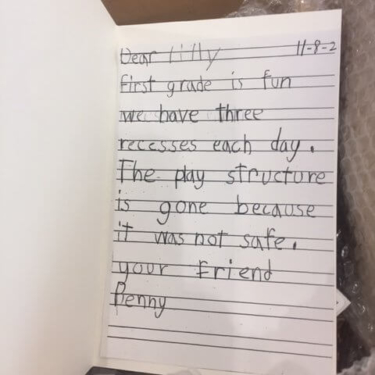 Dear Lilly 11-9-2
first grade is fun
we have three
recesses each day.
The play structure
is gone because
it was not safe.
your friend
Penny